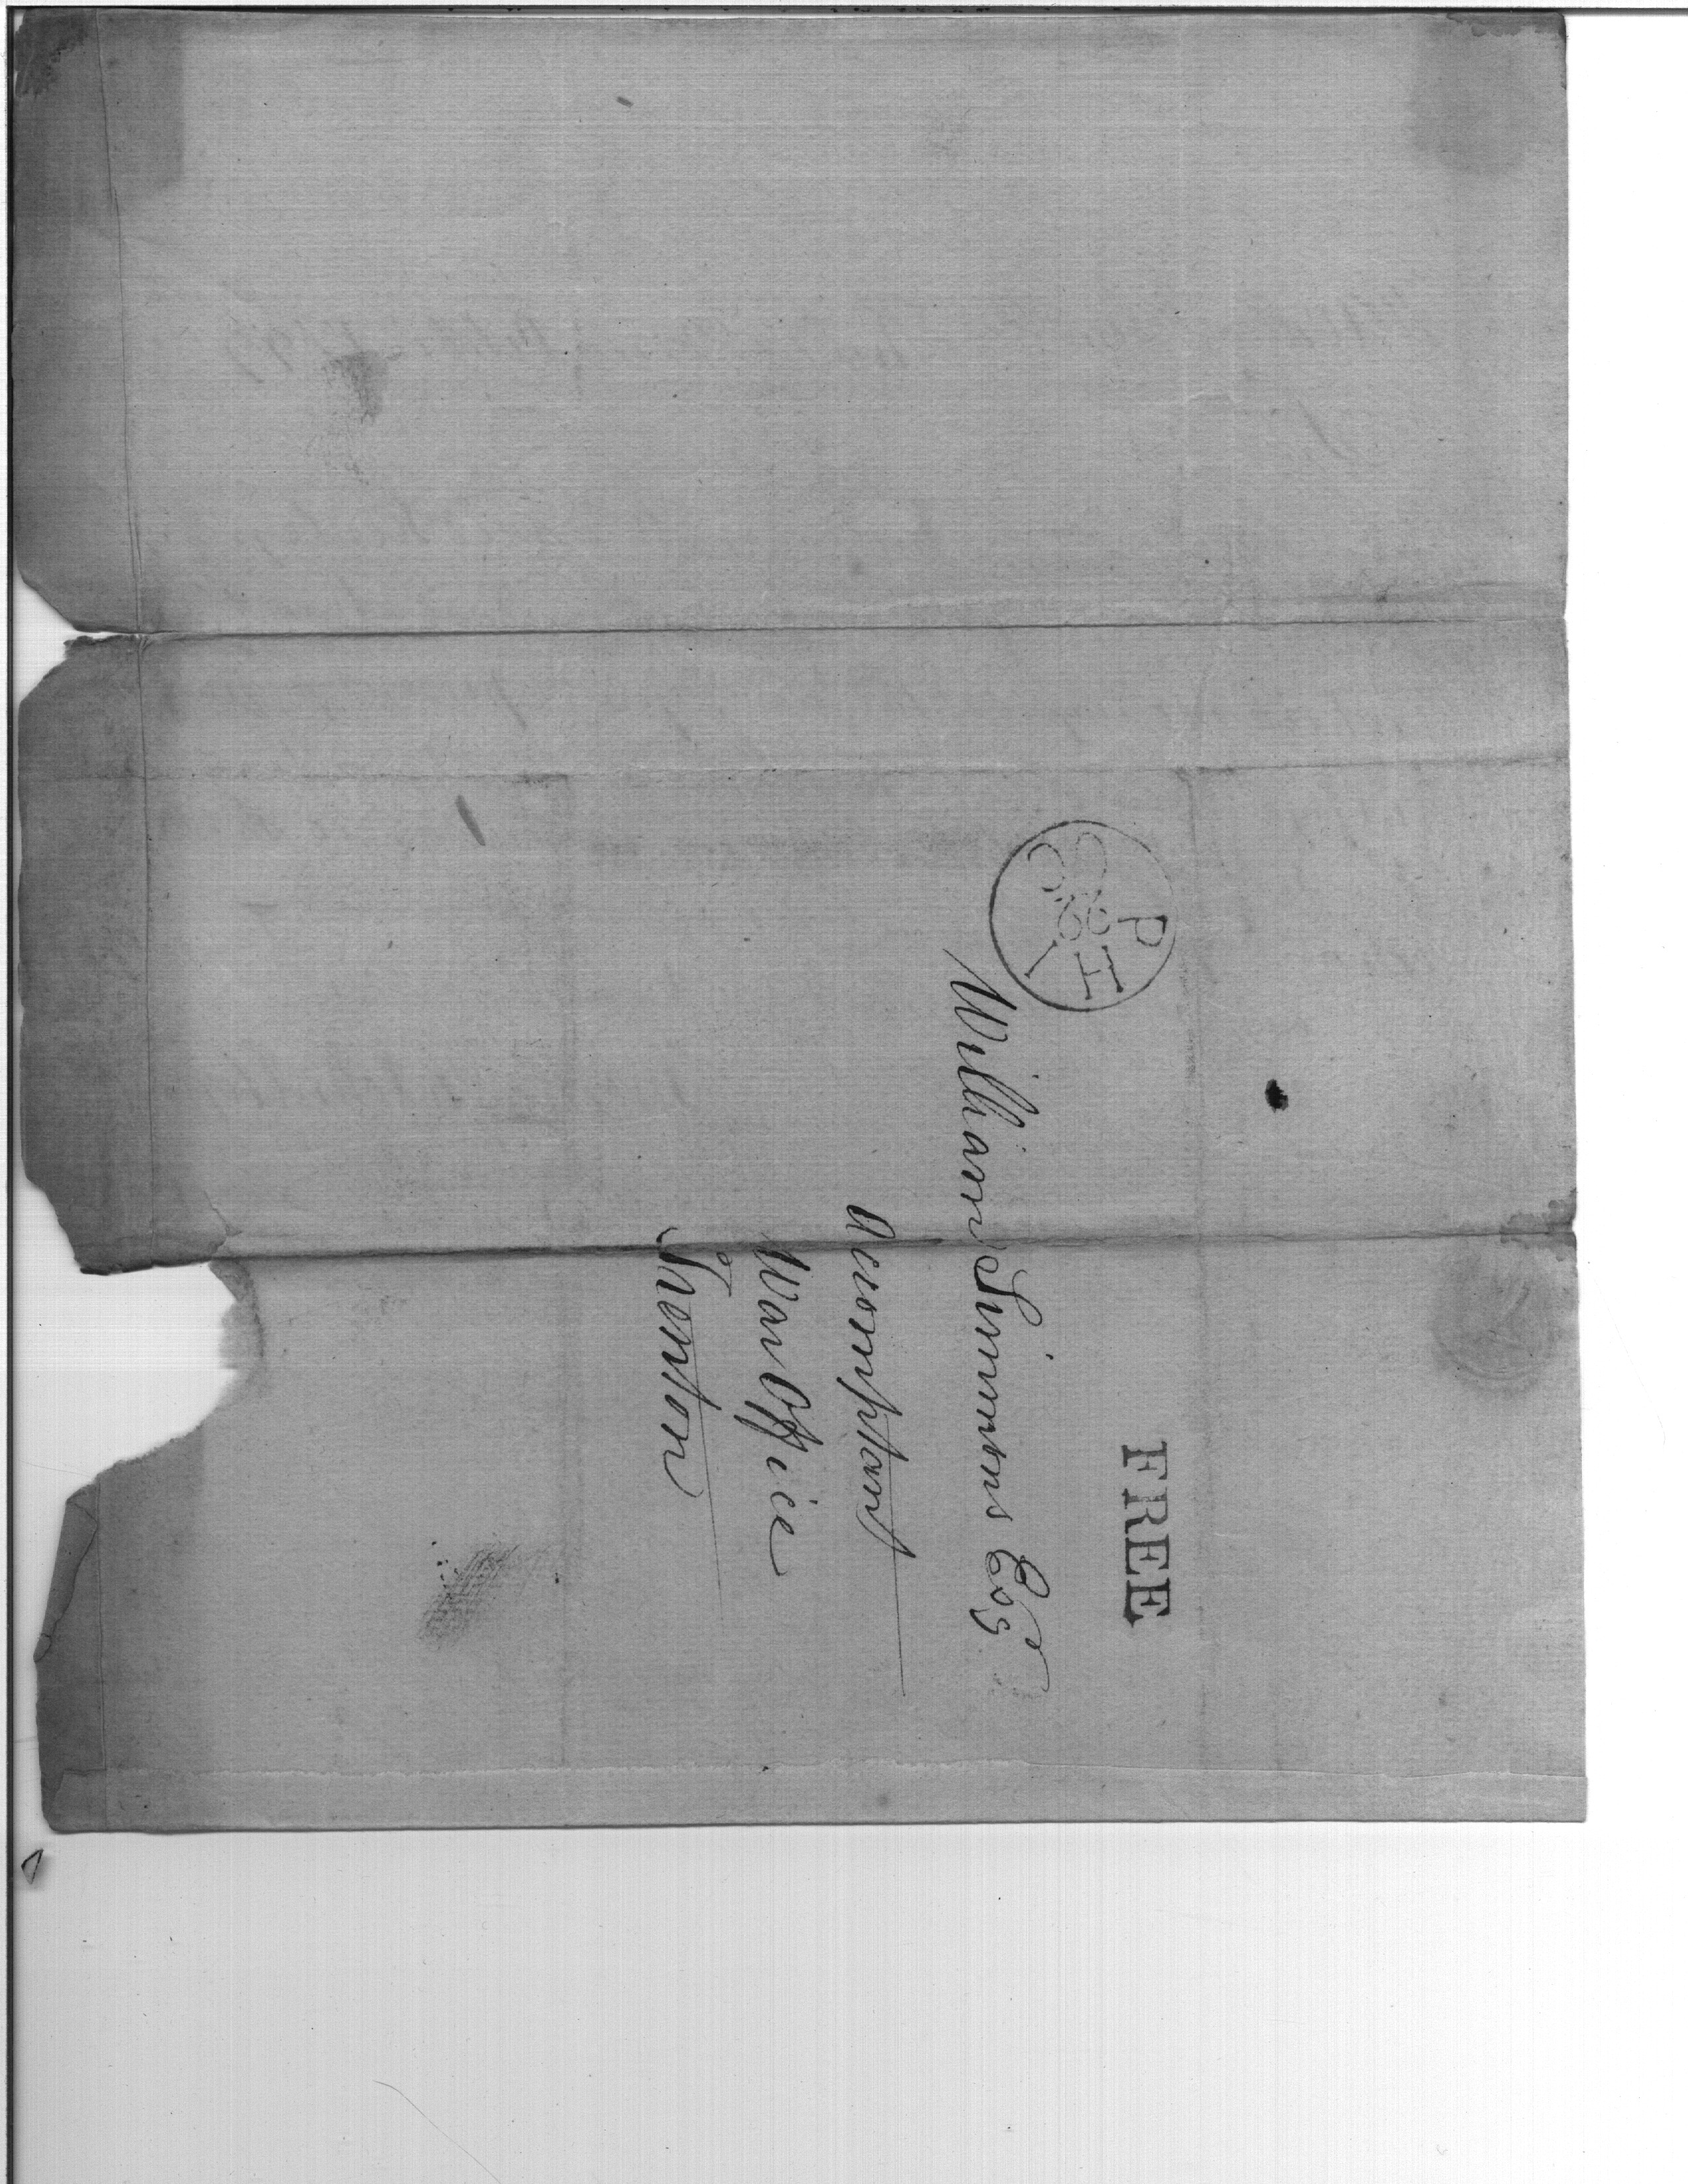 FREE
William Simmons Esqr
Accomptant
War Office
Trenton